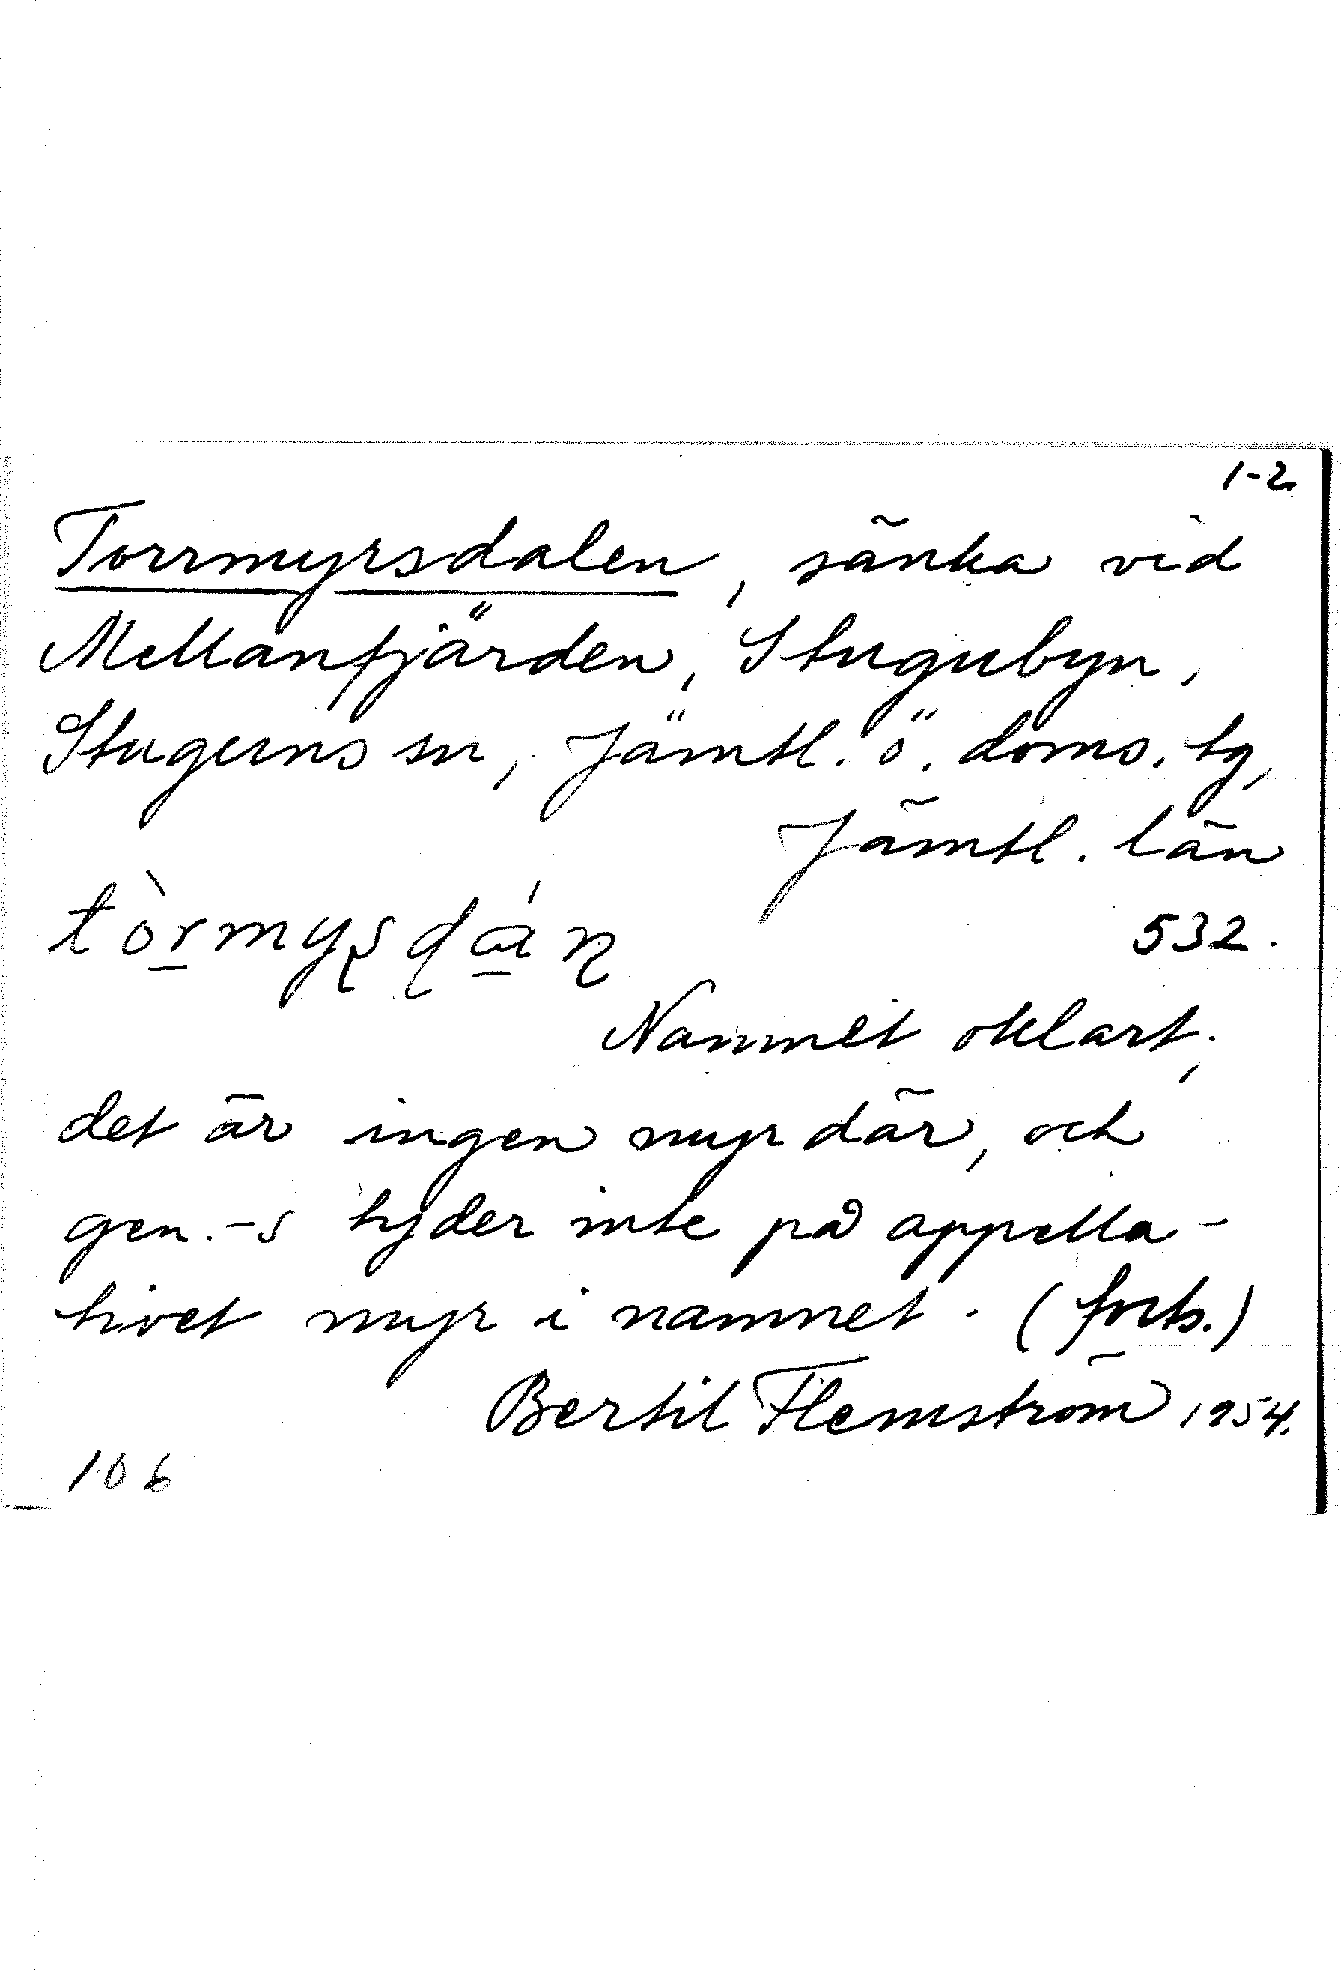 1-2.
Torrmyrsdalen, sänka vid
Mellanfjärden, Stugubyn,
Stuguns sn, Jämtl. ö. doms. tg,
Jämtl. län
tòrmyʂɖáɳ 532.
Namnet oklart;
det är ingen myr där, och
gen.-s tyder inte på appella-
tivet myr i namnet. (forts.)
Bertil Flemström 1954.
106